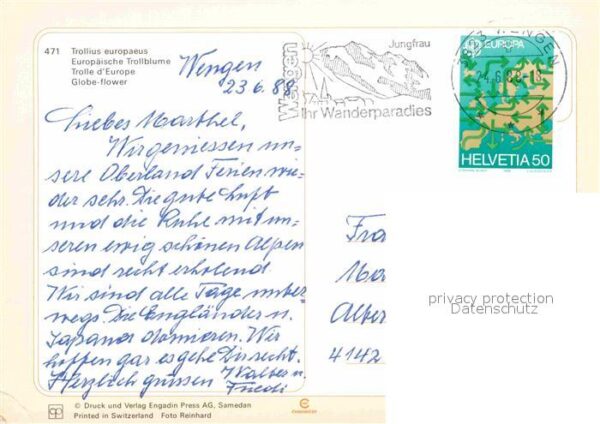 471 Trollius europaeus
Europäische Trollblume
Trolle d'Europe
Globe-flower
Wengen
23.6.88
Liebes Marthel,
Wir geniessen un-
sere Oberland Ferien wie-
der sehr. Die gute Luft
und die Ruhe mit un-
seren ewig schönen Alpen
sind recht erholend
Wir sind alle Tage unter-
wegs. Die Engländer u.
Japaner dominieren. Wir
hoffen gar es gehe Dir recht.
Herzlich grüssen Walter u.
Friedi
© Druck und Verlag Engadin Press AG, Samedan
Printed in Switzerland Foto Reinhard
Wengen
Jungfrau
Ihr Wanderparadies
3823 WENGEN
24.6.88-13
EUROPA
HELVETIA 50
Fra
Ma
Alber
4142
privacy protection
Datenschutz